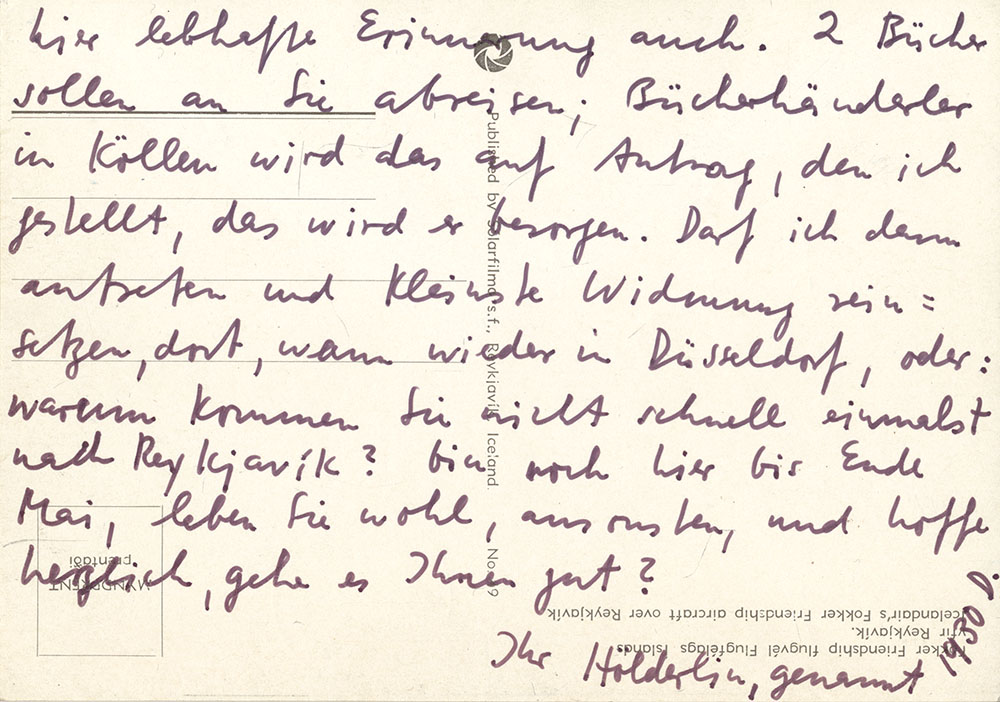 hier lebhafte Erinnerung auch. 2 Bücher
sollen an Sie abreisen; Bücherhänderler
in Köllen wird das auf Antrag, den ich
gestellt, das wird er besorgen. Darf ich dann
antreten und kleinste Widmung rein=
setzen, dort, wann wieder in Düsseldorf, oder:
warum kommen Sie nicht schnell einmalst
nach Reykjavík? bin noch hier bis Ende
Mai, leben Sie wohl, ansonsten, und hoffe
herzlich, gehe es Ihnen gut?
Ihr Hölderlin, genannt
Published by Solarfilma s.f., Reykjavík, Iceland.
Fokker Friendship flugvél Flugfélags Íslands
yfir Reykjavík.
Icelandair's Fokker Friendship aircraft over Reykjavík
prentaði